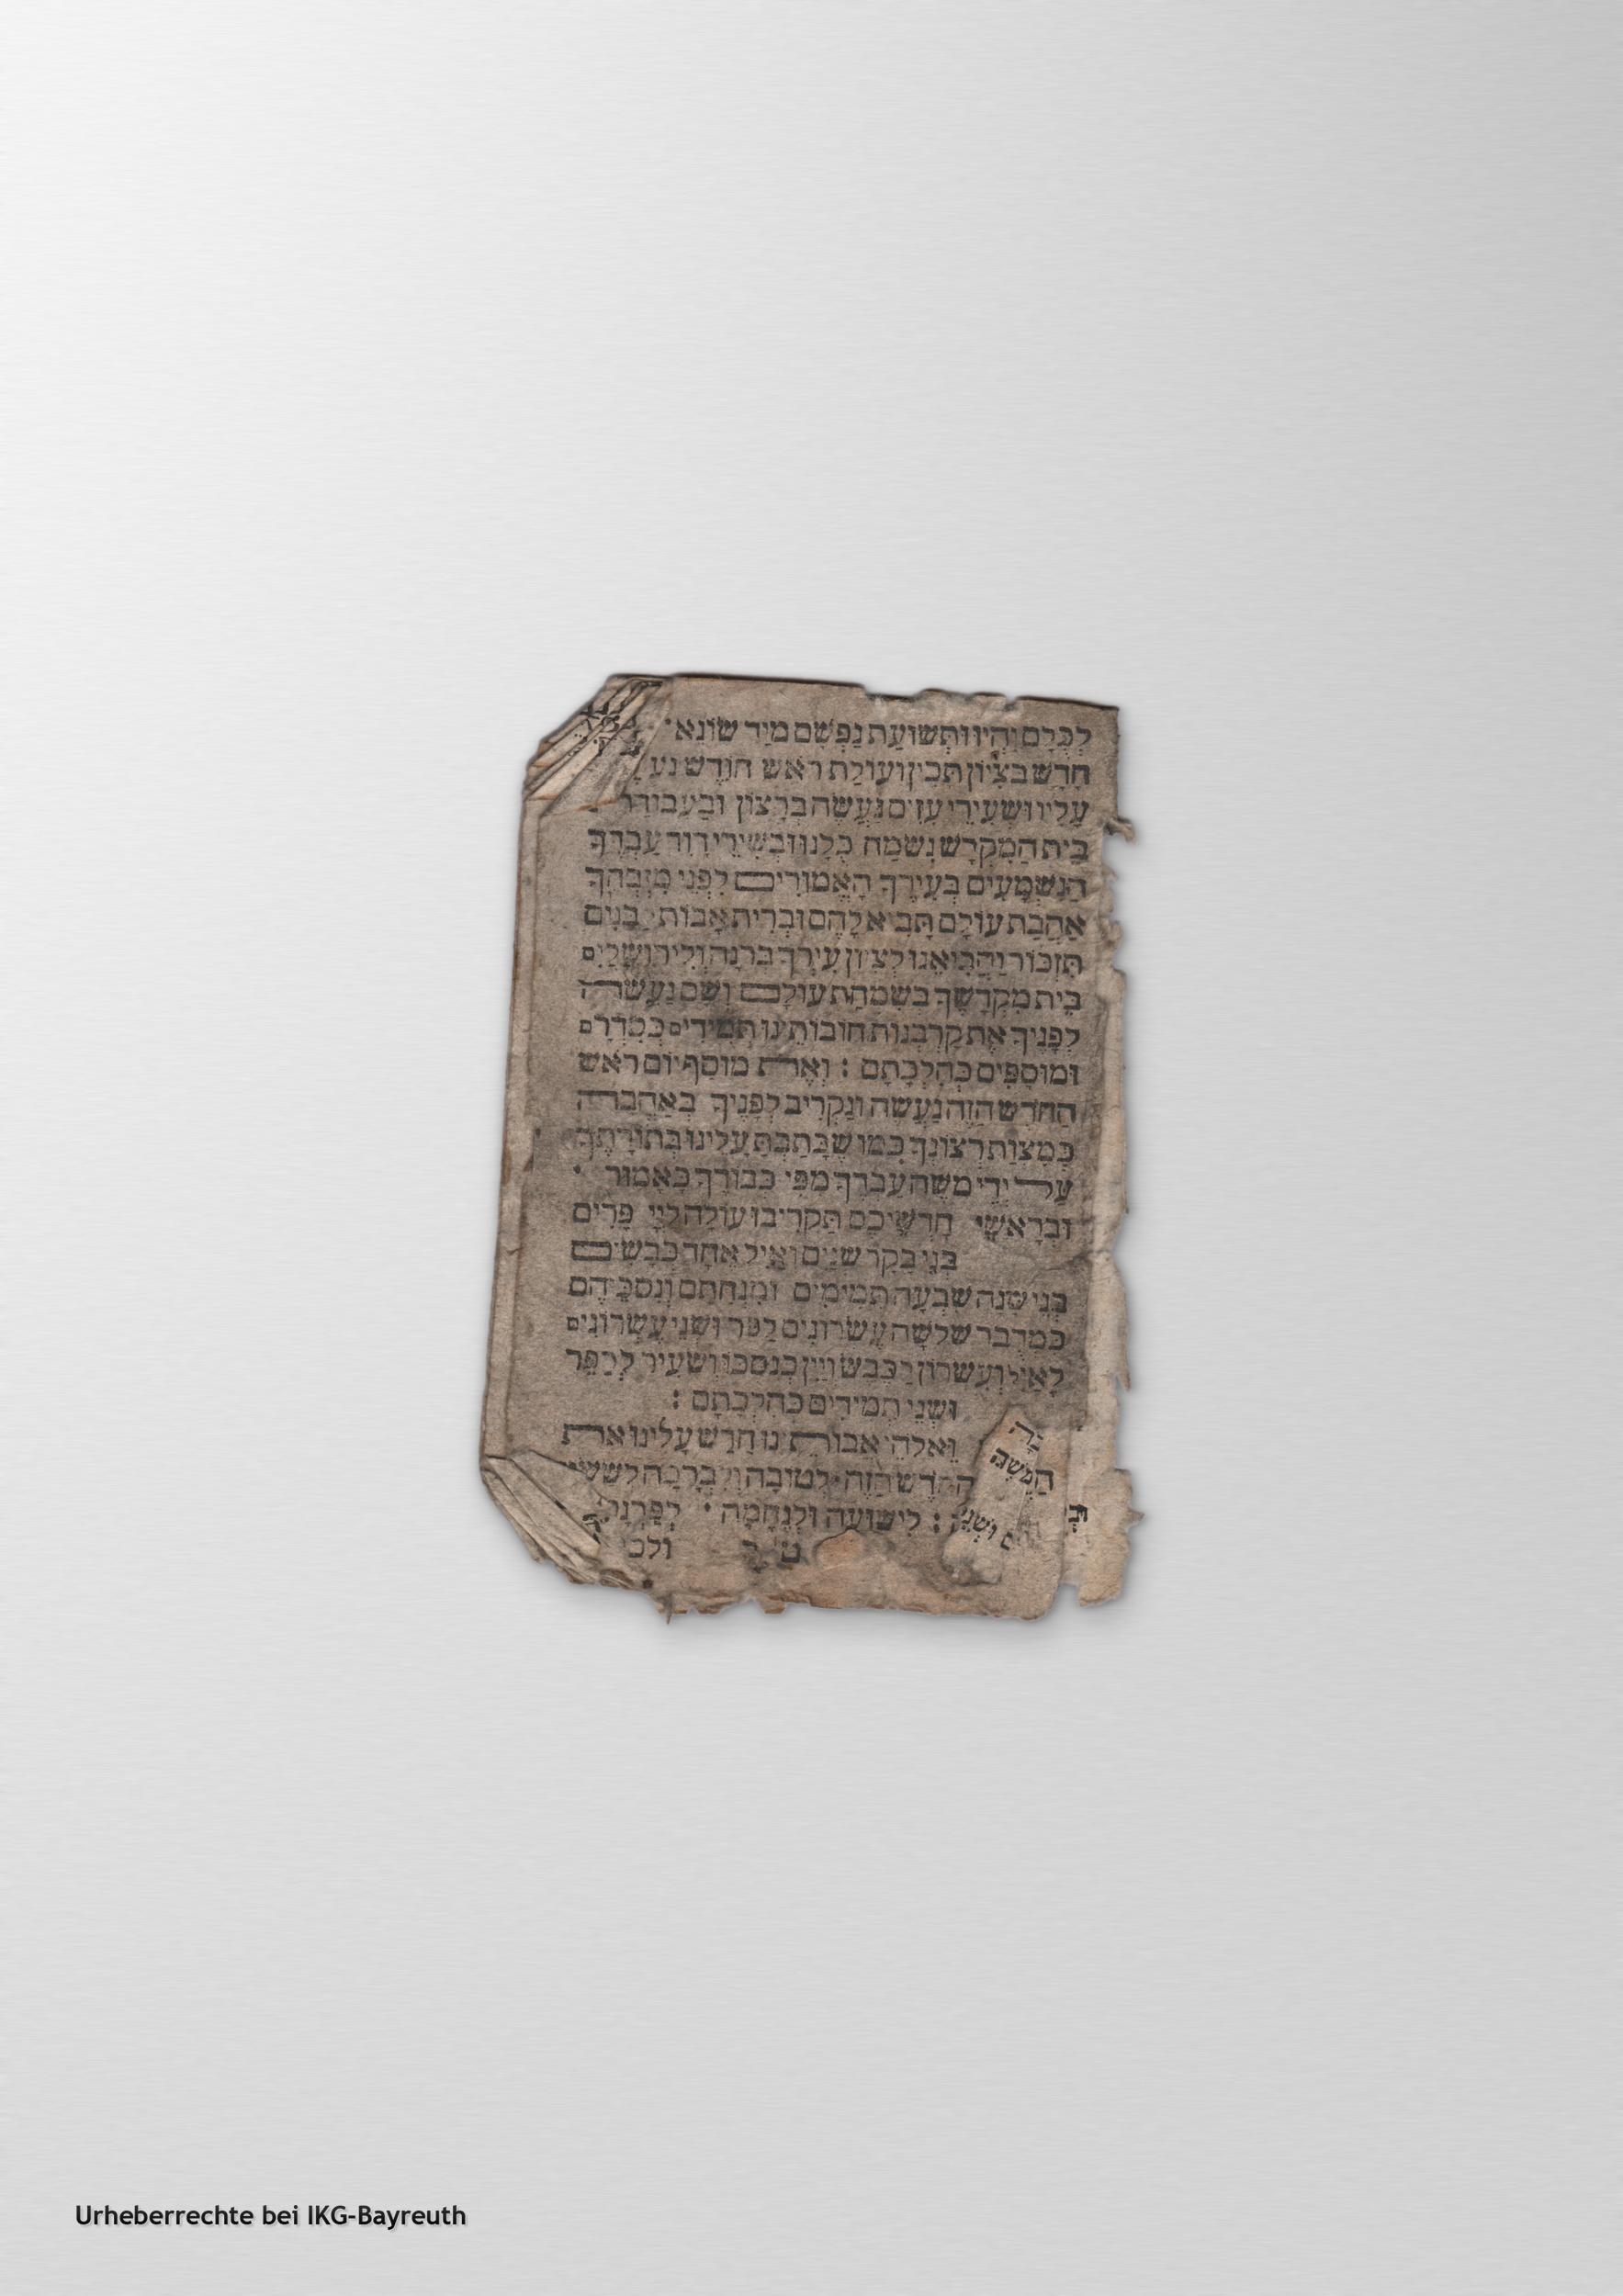 לְכֻלָּם יִהְיוּ וּתְשׁוּעַת נַפְשָׁם מִיַּד שׂוֹנֵא
חָדָשׁ בְּצִיּוֹן תָּכִין וְעוֹלַת רֹאשׁ חוֹדֶשׁ נַעֲ
עָלָיו וּשְׂעִירֵי עִזִּים נַעֲשֶׂה בְרָצוֹן וּבַעֲבוֹדַת
בֵּית הַמִּקְדָּשׁ נִשְׂמַח כֻּלָּנוּ וּבְשִׁירֵי דָוִד עַבְדֶּךָ
הַנִּשְׁמָעִים בְּעִירֶךָ הָאֲמוּרִים לִפְנֵי מִזְבְּחֶךָ
אַהֲבַת עוֹלָם תָּבִיא לָהֶם וּבְרִית אָבוֹת לַבָּנִים
תִּזְכּוֹר וַהֲבִיאֵנוּ לְצִיּוֹן עִירְךָ בְּרִנָּה וְלִירוּשָׁלַיִם
בֵּית מִקְדָּשְׁךָ בְּשִׂמְחַת עוֹלָם וְשָׁם נַעֲשֶׂה
לְפָנֶיךָ אֶת קָרְבְּנוֹת חוֹבוֹתֵינוּ תְּמִידִים כְּסִדְרָם
וּמוּסָפִים כְּהִלְכָתָם : וְאֶת מוּסַף יוֹם רֹאשׁ
הַחֹדֶשׁ הַזֶּה נַעֲשֶׂה וְנַקְרִיב לְפָנֶיךָ בְּאַהֲבָה
כְּמִצְוַת רְצוֹנֶךָ כְּמוֹ שֶׁכָּתַבְתָּ עָלֵינוּ בְּתוֹרָתֶךָ
עַל יְדֵי מֹשֶׁה עַבְדֶּךָ מִפִּי כְבוֹדֶךָ כָּאָמוּר ·
וּבְרָאשֵׁי חָדְשֵׁיכֶם תַּקְרִיבוּ עוֹלָה לַיְיָ פָּרִים
בְּנֵי בָקָר שְׁנַיִם וְאַיִל אֶחָד כְּבָשִׂים
בְּנֵי שָׁנָה שִׁבְעָה תְּמִימִים וּמִנְחָתָם וְנִסְכֵּיהֶם
כִּמְדֻבָּר שְׁלֹשָׁה עֶשְׂרוֹנִים לַפָּר וּשְׁנֵי עֶשְׂרוֹנִים
לָאַיִל וְעִשָּׂרוֹן לַכֶּבֶשׂ וְיַיִן כְּנִסְכּוֹ וְשָׂעִיר לְכַפֵּר
וּשְׁנֵי תְמִידִים כְּהִלְכָתָם :
וֵאלֹהֵי אֲבוֹתֵינוּ חַדֵּשׁ עָלֵינוּ אֶת
הַחֹדֶשׁ הַזֶּה לְטוֹבָה וְלִבְרָכָה לְשָׂשׂוֹ
: לִישׁוּעָה וּלְנֶחָמָה · לְפַרְנָ
הַמִּשְׁנֶה
וּשְׁנֵי
Urheberrechte bei IKG-Bayreuth